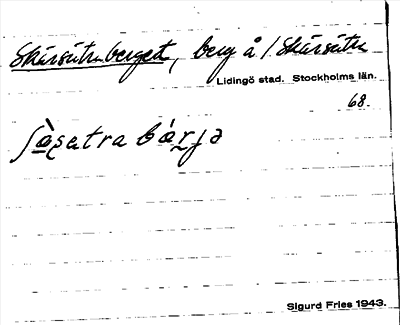 Skärsätraberget, berg å / Skärsätra
Lidingö stad. Stockholms län.
68.
ʃὰʂatra bárja
Sigurd Fries 1943.